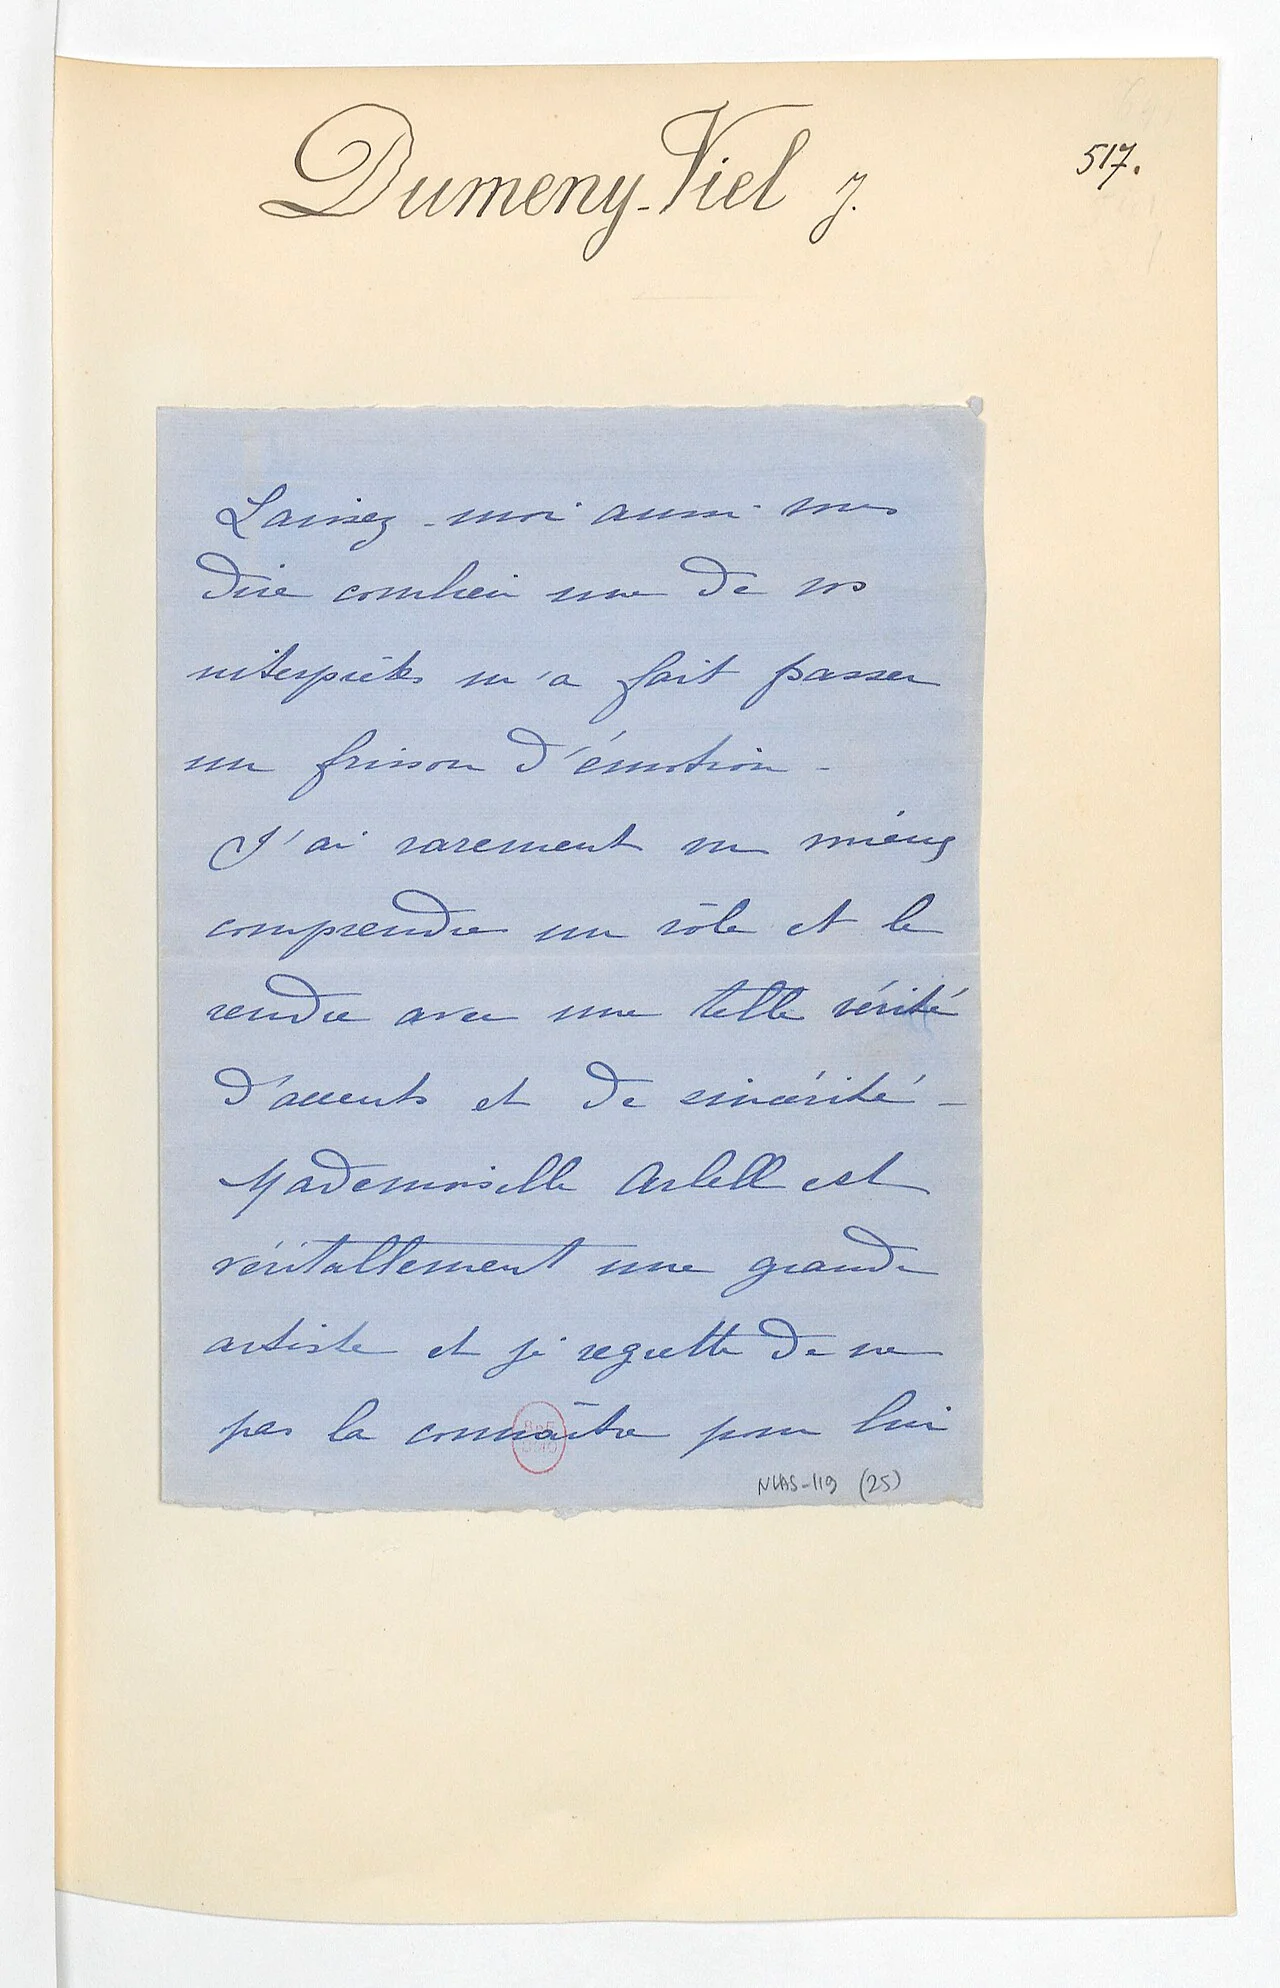 Dumeny-Viel J.
517.
Laissez-moi aussi vous
dire combien une de vos
interprètes m'a fait passer
un frisson d'émotion -
J'ai rarement vu mieux
comprendre un rôle et le
rendre avec une telle vérité
d'accents et de sincérité -
Mademoiselle Arbell est
véritablement une grande
artiste et je regrette de ne
pas la connaître pour lui
BnF
MUS
NLAS-119 (25)